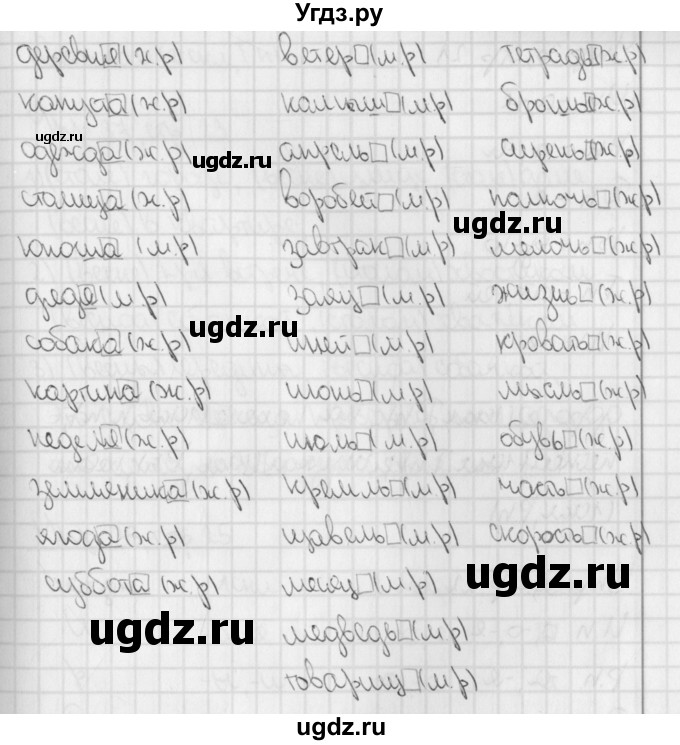 Угдз.ру
деревня (ж.р) ветер (м.р) тетрадь (ж.р)
капуста (ж.р) камыш (м.р) брошь (ж.р)
ugdz.ru
одежда (ж.р) ugdz.ru апрель (м.р) сирень (ж.р)
столица (ж.р) воробей (м.р) полночь (ж.р)
ugdz.ru
юноша (м.р) завтрак (м.р) мелочь (ж.р)
дядя (м.р) заяц (м.р) жизнь (ж.р)
ugdz.ru
собака (ж.р) иней (м.р) кровать (ж.р)
картина (ж.р) июнь (м.р) мысль (ж.р)
неделя (ж.р) июль (м.р) обувь (ж.р)
земляника (ж.р) Кремль (м.р) часть (ж.р)
ягода (ж.р) щавель (м.р) скорость (ж.р)
суббота (ж.р) месяц (м.р) ugdz.ru
ugdz.ru медведь (м.р)
товарищ (м.р)
ugdz.ru